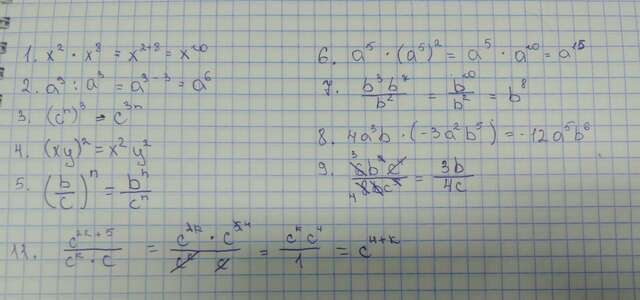 1. x² · x⁸ = x²⁺⁸ = x¹⁰
2. a⁹ : a³ = a⁹⁻³ = a⁶
3. (cⁿ)³ = c³ⁿ
4. (xy)² = x² y²
5. (b/c)ⁿ = bⁿ/cⁿ
6. a⁵ · (a⁵)² = a⁵ · a¹⁰ = a¹⁵
7. b³b⁷/b² = b¹⁰/b² = b⁸
8. 4a³b · (-3a²b⁵) = -12a⁵b⁶
9. = 3b/4c
11. c²ᵏ⁺⁵/cᵏ · c = c²ᵏ · c⁵/cᵏ c = cᵏ c⁴/1 = c⁴⁺ᵏ